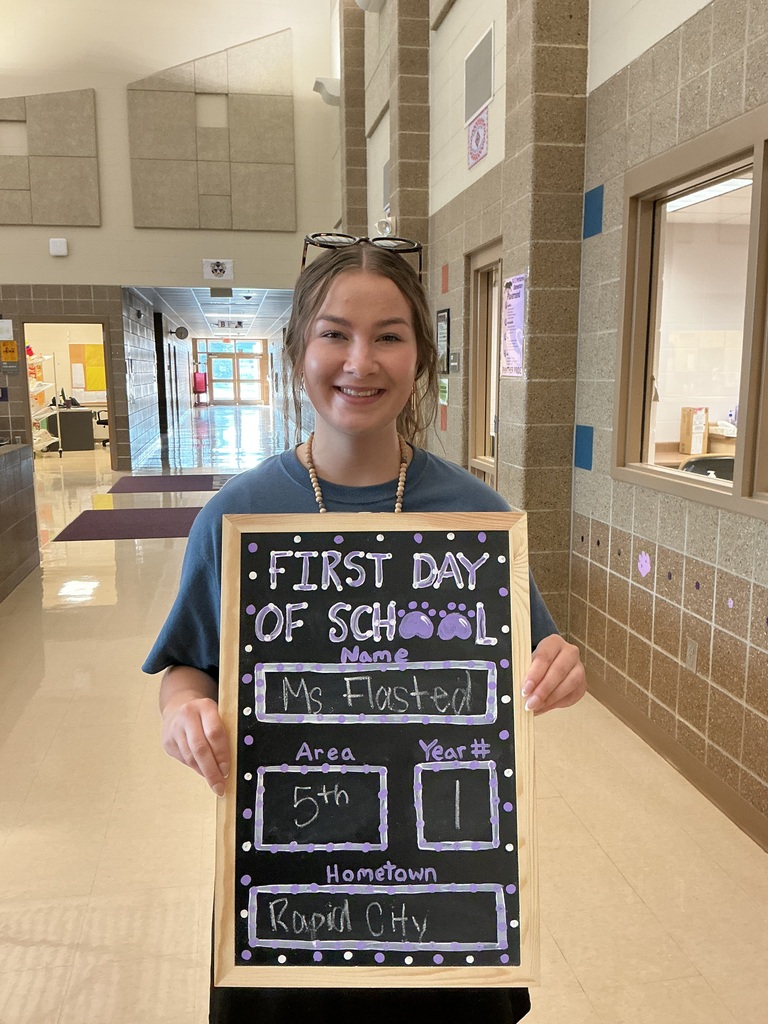 FIRST DAY
OF SCHOOL
Name
Ms Flasted
Area
Year#
5th
1
Hometown
Rapid City